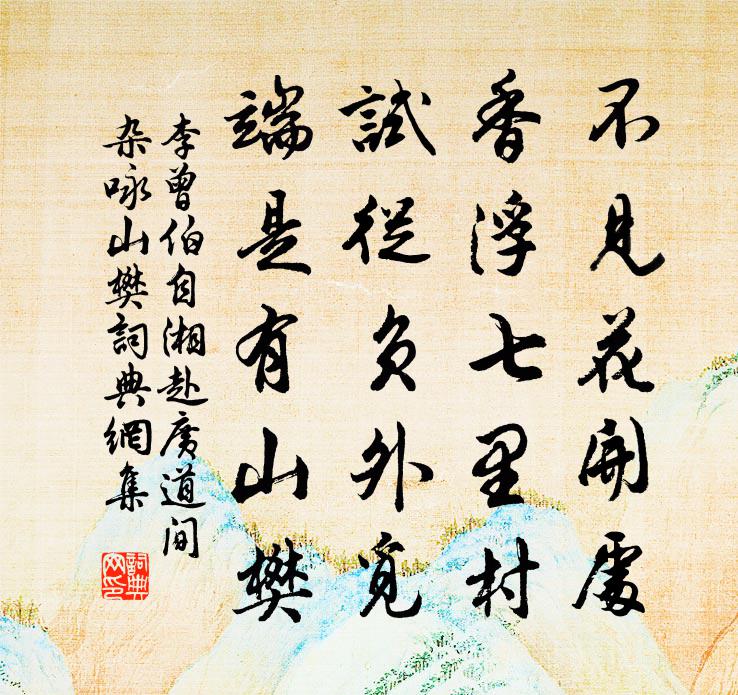 不見花開處
香浮七里村
試從負外覓
端是有山樊
李曾伯自湘赴廣道间
杂咏山樊詞典網集
詞典
网印